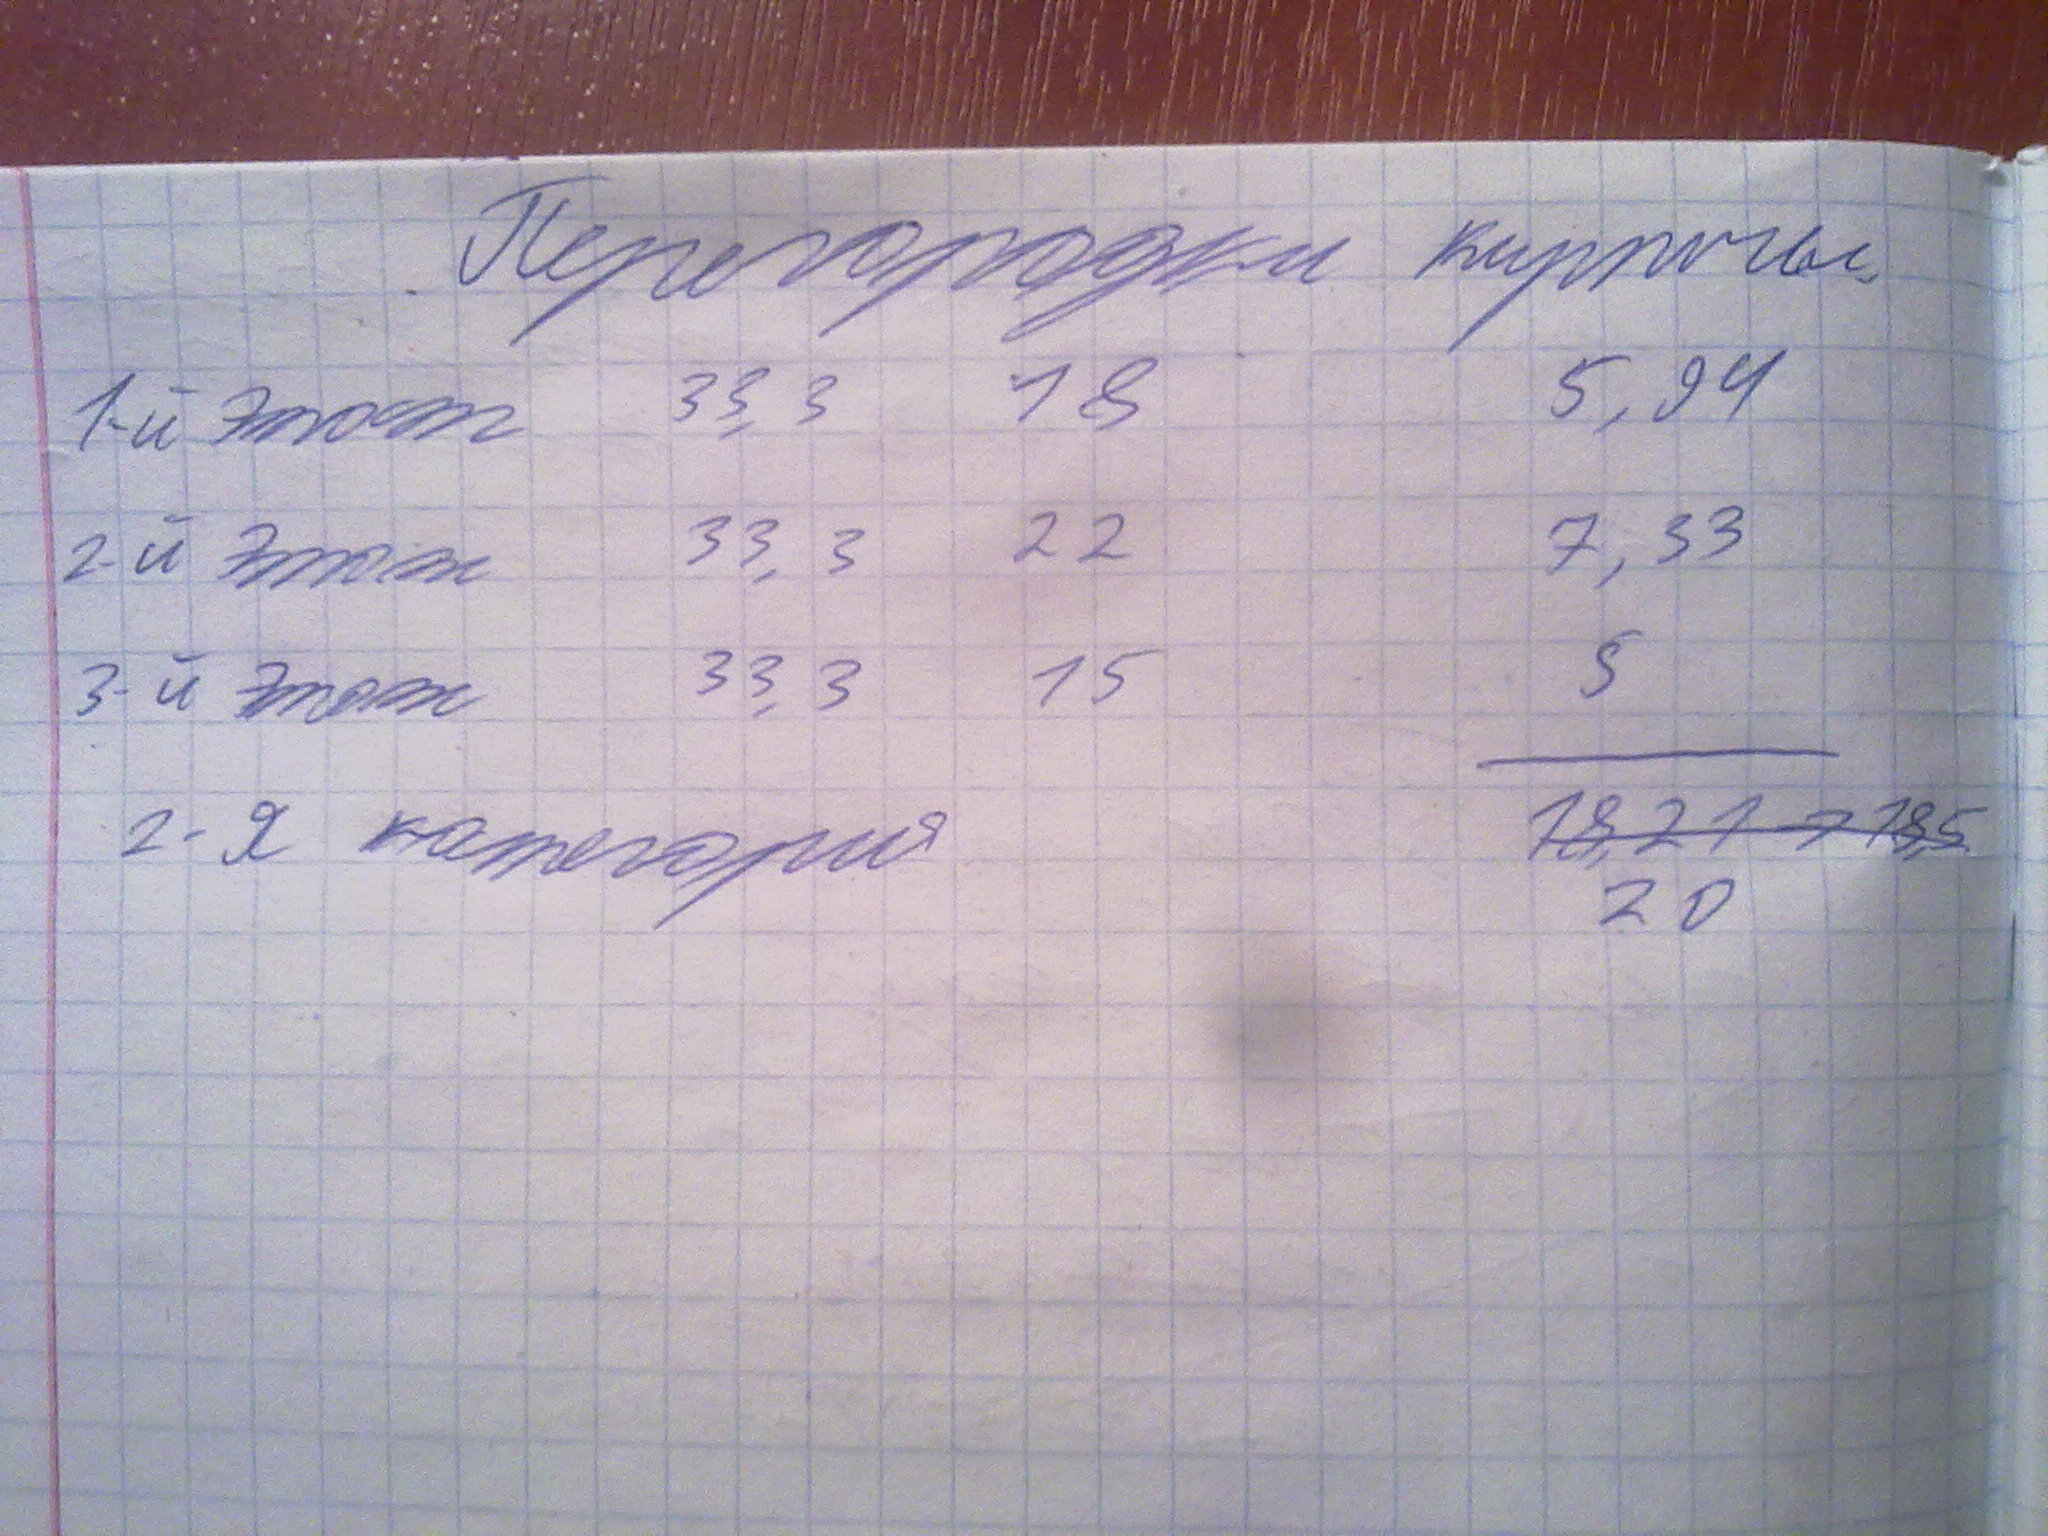 Перегородки кирпичн.
1-й этаж 33,3 18 5,94
2-й этаж 33,3 22 7,33
3-й этаж 33,3 15 5
2-я категория 18,21 → 18,5
20